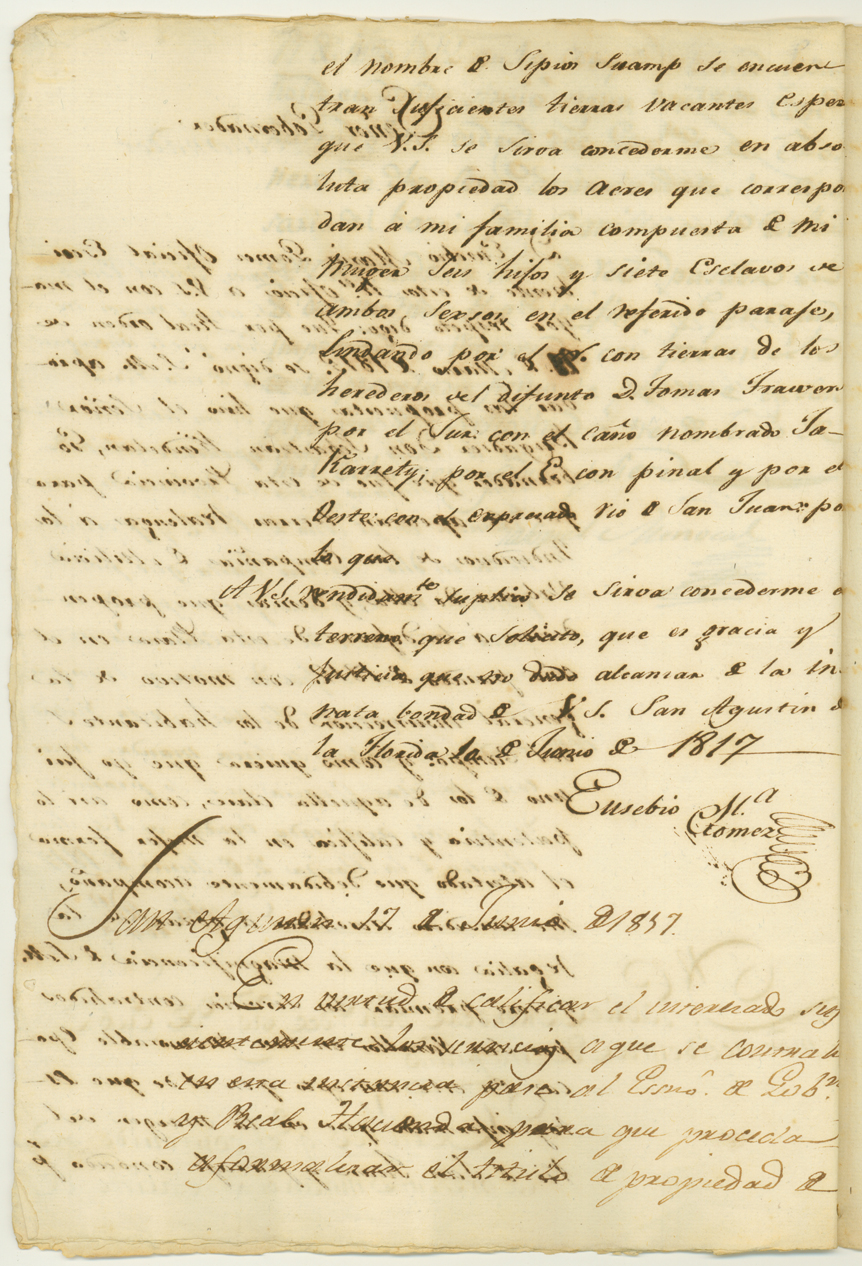 el nombre de Sipios Suamp se encuen
tran suficientes tierras vacantes Esper
que V.S. se sirva concederme en abso
luta propiedad los acres que correspo
dan á mi familia compuesta de mi
muger seis hijos y siete Esclavos de
ambos sexsos, en el referido parage,
Lindando por el N. con tierras de los
herederos del difunto D. Tomas Trawers
por el Sur: con el caño nombrado Ja-
Karrety; por el E. con pinal y por el
Oeste: con el expresado rio de San Juan: po
lo que
A V.S. rendidamte. suplico se sirva concederme e
terreno que solicito, que es gracia y
justicia que no dudo alcanzar de la in
nata bondad de V.S. San Agustin d
la Florida 10 de Junio de 1817
Eusebio Ma.
Gomez
San Agustin 17 de Junio de 1817.
En virtud de calificar el interesado sufi
cientemente las a que se contrahe
en esta instancia pase al Essno. de Gobno.
y Real Hacienda para que proceda
a formalizar el titulo de propiedad de